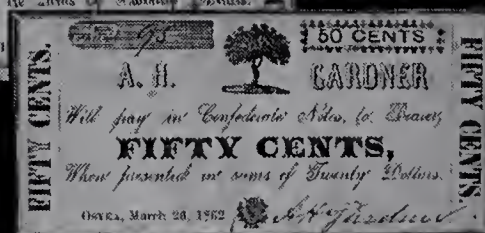 95
50 CENTS
A. H. GARDNER
Will pay in Confederate Notes, to Bearer
FIFTY CENTS,
When presented in sums of Twenty Dollars.
March 26, 1862
A H Gardner
FIFTY CENTS.
FIFTY CENTS.